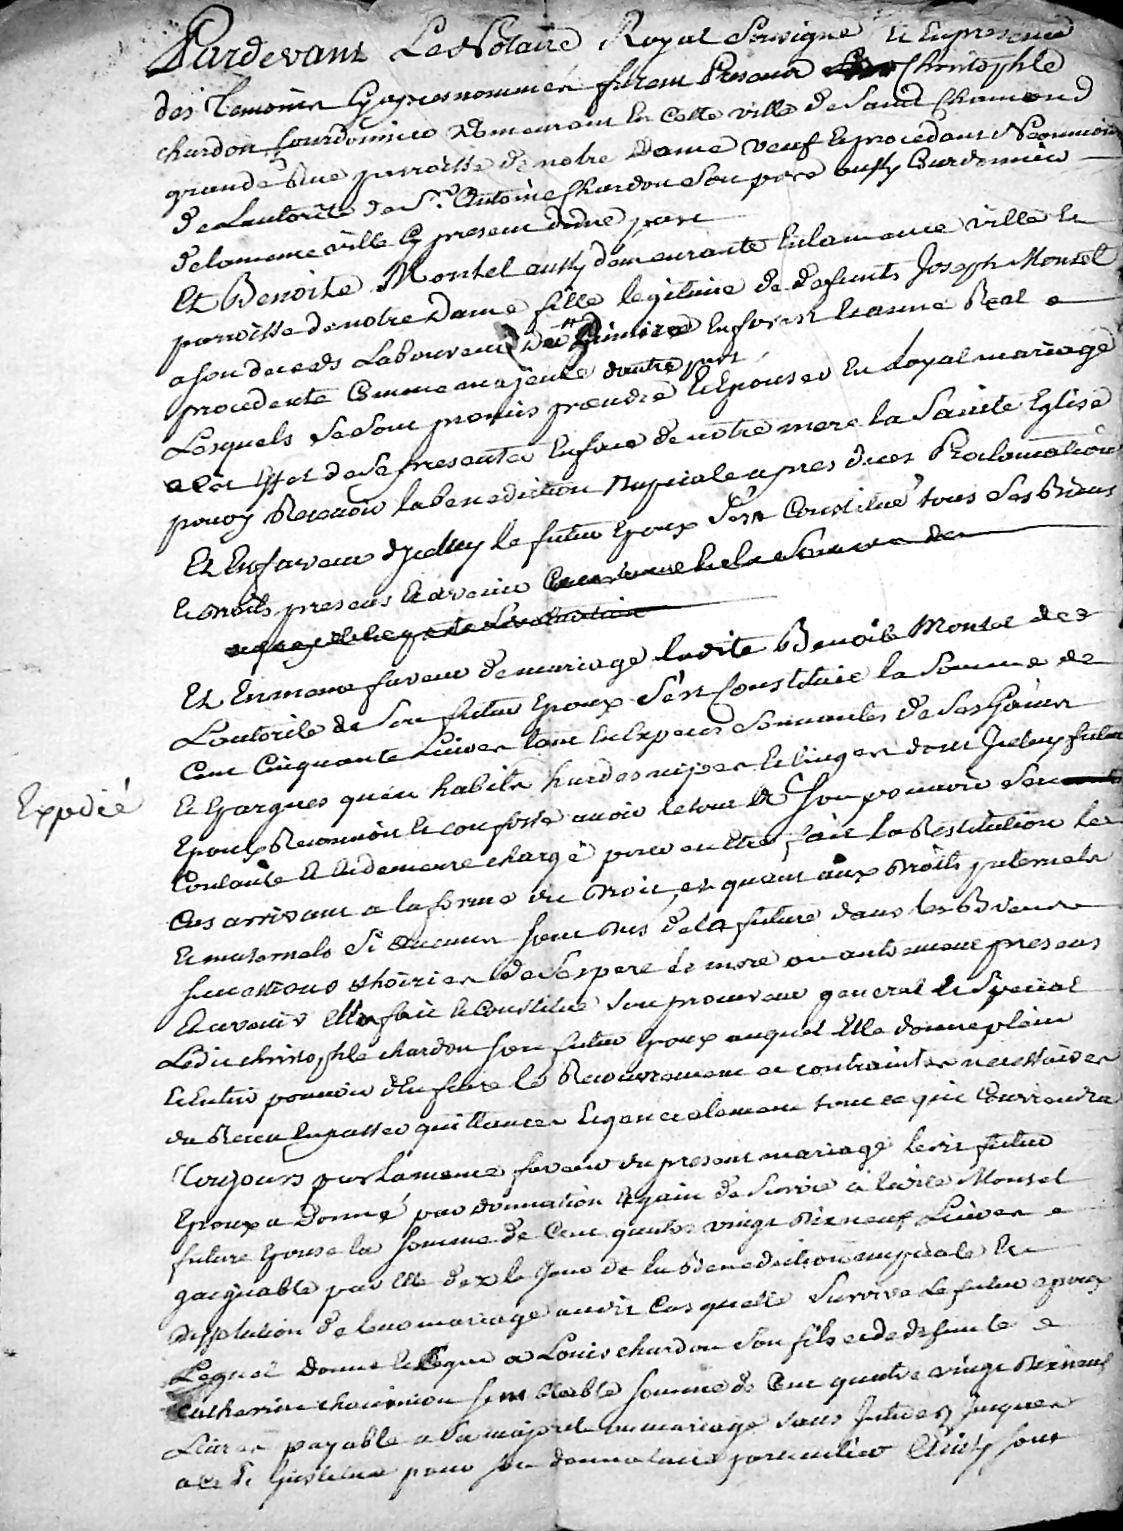 Pardevant Le Notaire Royal Soussigné et En presence
des Temoins Cy apres nommés furent Presents Christophle
chardon Courdonnier demeurant En Cette ville de Saint Chamond
grande Rue parroisse de notre Dame veuf et procedant Neanmoins
de L'autorité de Sr. Antoine Chardon Son pere aussy Courdonnier
de la meme ville Cy present d'une part
Et Benoite Montel aussy demeurante En la meme ville et
parroisse de notre Dame fille legitime de defunts Joseph Montel
a son deceds Laboureur En forest Et anne Real
procedente Comme majeure d'autre part
Lesquels Se Sont promis prendre Et Epouser En Loyal mariage
a Cet Effet de Se presenter En face de notre mere la Sainte Eglise
pour y Recevoir la benediction Nupciale apres dues Proclamations
Et En faveur d'Jceluy le futur Epoux S'est Constitué tous Ses Biens
Et droits presens Et avenir
Et En meme faveur de mariage ladite Benoite Montel de
L'autorité de Son futur Epoux S'est Constituée la Somme de
Cent Cinquante Livres tant En Especes Sonnantes de Ses Gains
Et Epargnes qu'en habits hardes nipes Et linges dont Jceluy futur
Epoux Reconnoit Et confesse avoir le tout En Son pouvoir S'en
Contante Et En demeure chargé pour en Etre fait la Restitution le
Cas arrivant a la forme du Droit, et quant aux Droits paternels
Et maternels Si Aucuns Sont dus de la future dans les Biens
Successions Et hoiries de Ses pere Et mere ou autrement presens
Et avenir Elle fait Et Constitue Son procureur general Et Special
Ledit christophle chardon Son futur Epoux auquel Elle donne plein
Et Entier pouvoir d'En faire le Recouvrement et contraintes necessaires
du Recu En passer quittances Et generalement tout ce qui Conviendra
Toujours par la meme faveur du present mariage ledit futur
Epoux a Donné par donnation Et gain de Survie a ladite Montel
future Epouse la Somme de Cent quatre vingt Dix neuf Livres
gaignable par Elle dez le Jour de la Benediction nupciale Et
dissolution de leur mariage audit Cas quelle Survive le futur epoux
Lequel donne Et Legue a Louis chardon Son fils et de defunte
Catherine Semblable Somme de Cent quatre vingt Dix neuf
Livres payable a Sa majorité ou mariage Sans Jnterets Jusques
a ce Et L'Jnstitue pour Son donnataire particulier Ainsy Sont
Expedié